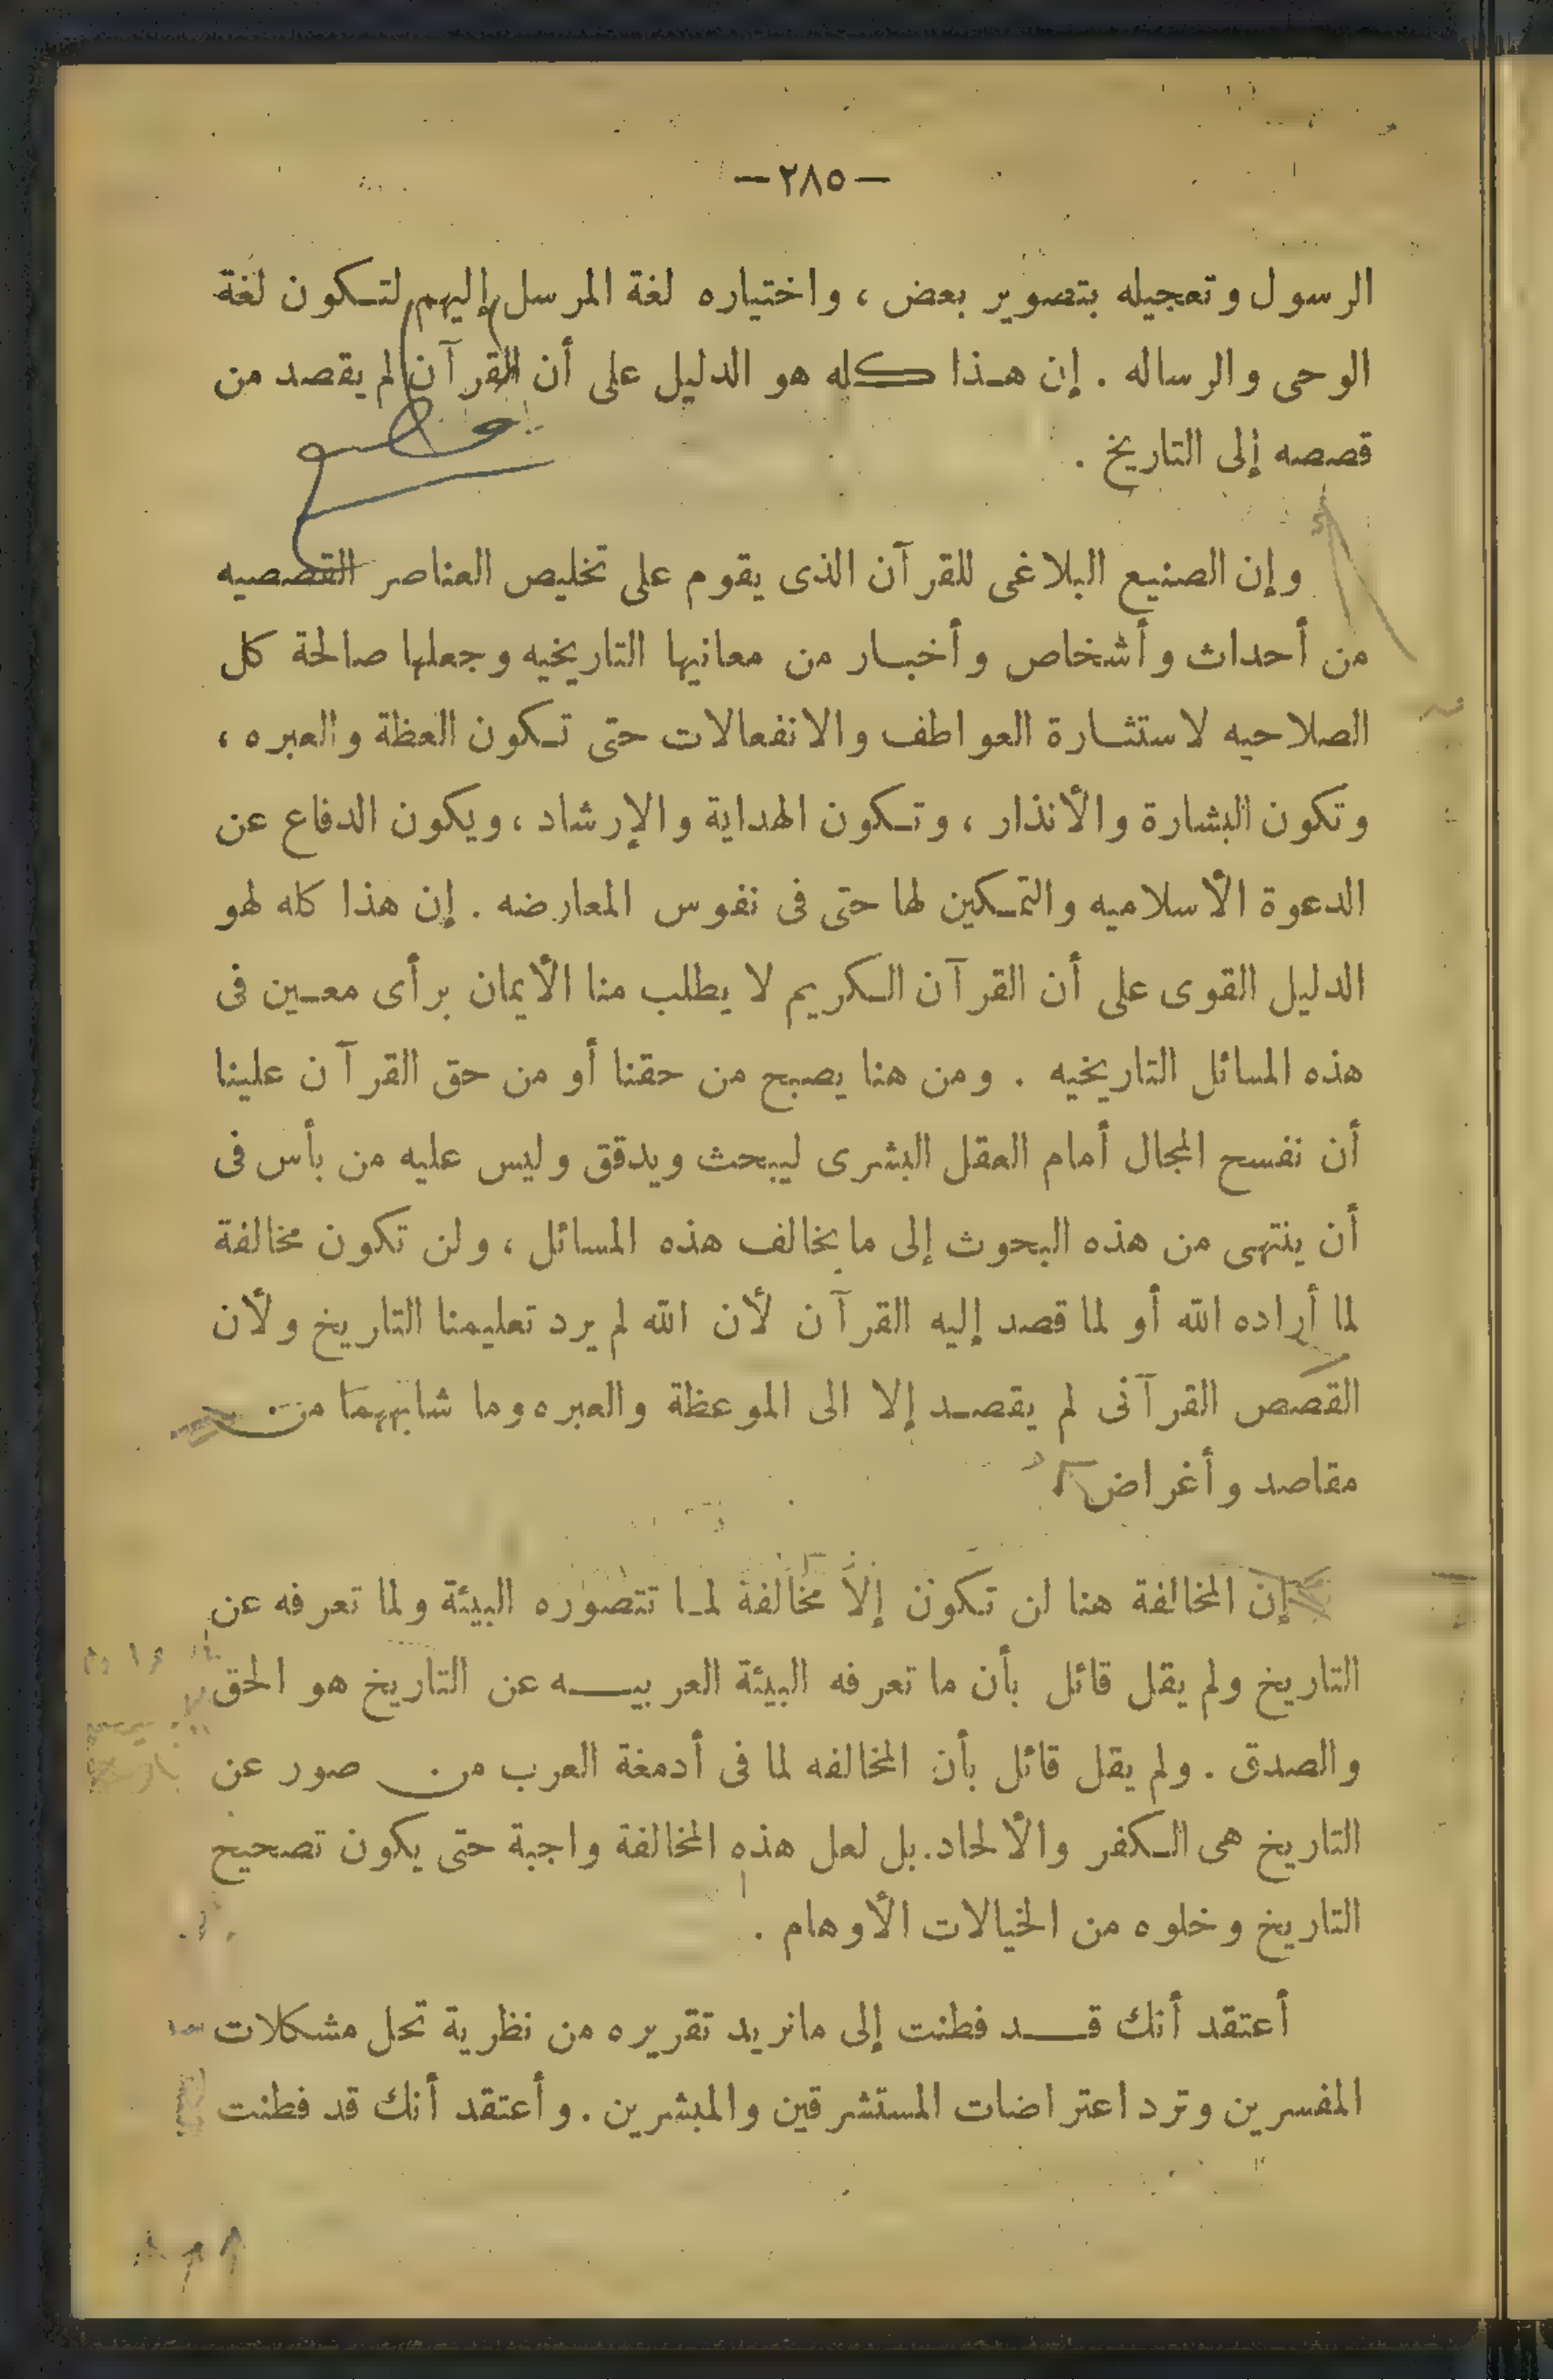 — ٢٨٥ —
الرسول وتعجيله بتصوير بعض ، واختياره لغة المرسل إليهم لتكون لغة
الوحى والرساله . إن هذا كله هو الدليل على أن القرآن لم يقصد من
قصصه إلى التاريخ .
وإن الصنيع البلاغى للقرآن الذى يقوم على تخليص العناصر القصصيه
من أحداث وأشخاص وأخبار من معانيها التاريخيه وجعلها صالحة كل
الصلاحيه لاستثارة العواطف والانفعالات حتى تكون العظة والعبره ،
وتكون البشارة والأنذار ، وتكون الهداية والإرشاد ، ويكون الدفاع عن
الدعوة الأسلاميه والتمكين لها حتى فى نفوس المعارضه . إن هذا كله لهو
الدليل القوى على أن القرآن الكريم لا يطلب منا الأيمان برأى معين فى
هذه المسائل التاريخيه . ومن هنا يصبح من حقنا أو من حق القرآن علينا
أن نفسح المجال أمام العقل البشرى ليبحث ويدقق وليس عليه من بأس فى
أن ينتهى من هذه البحوث إلى ما يخالف هذه المسائل ، ولن تكون مخالفة
لما أراده الله أو لما قصد إليه القرآن لأن الله لم يرد تعليمنا التاريخ ولأن
القصص القرآنى لم يقصد إلا الى الموعظة والعبره وما شابههما من
مقاصد وأغراض
إن المخالفة هنا لن تكون إلا مخالفة لما تتصوره البيئة ولما تعرفه عن
التاريخ ولم يقل قائل بأن ما تعرفه البيئة العربيه عن التاريخ هو الحق
والصدق . ولم يقل قائل بأن المخالفه لما فى أدمغة العرب من صور عن
التاريخ هى الكفر والألحاد. بل لعل هذه المخالفة واجبة حتى يكون تصحيح
التاريخ وخلوه من الخيالات الأوهام .
أعتقد أنك قد فطنت إلى ما نريد تقريره من نظرية تحل مشكلات
المفسرين وترد اعتراضات المستشرقين والمبشرين . وأعتقد أنك قد فطنت